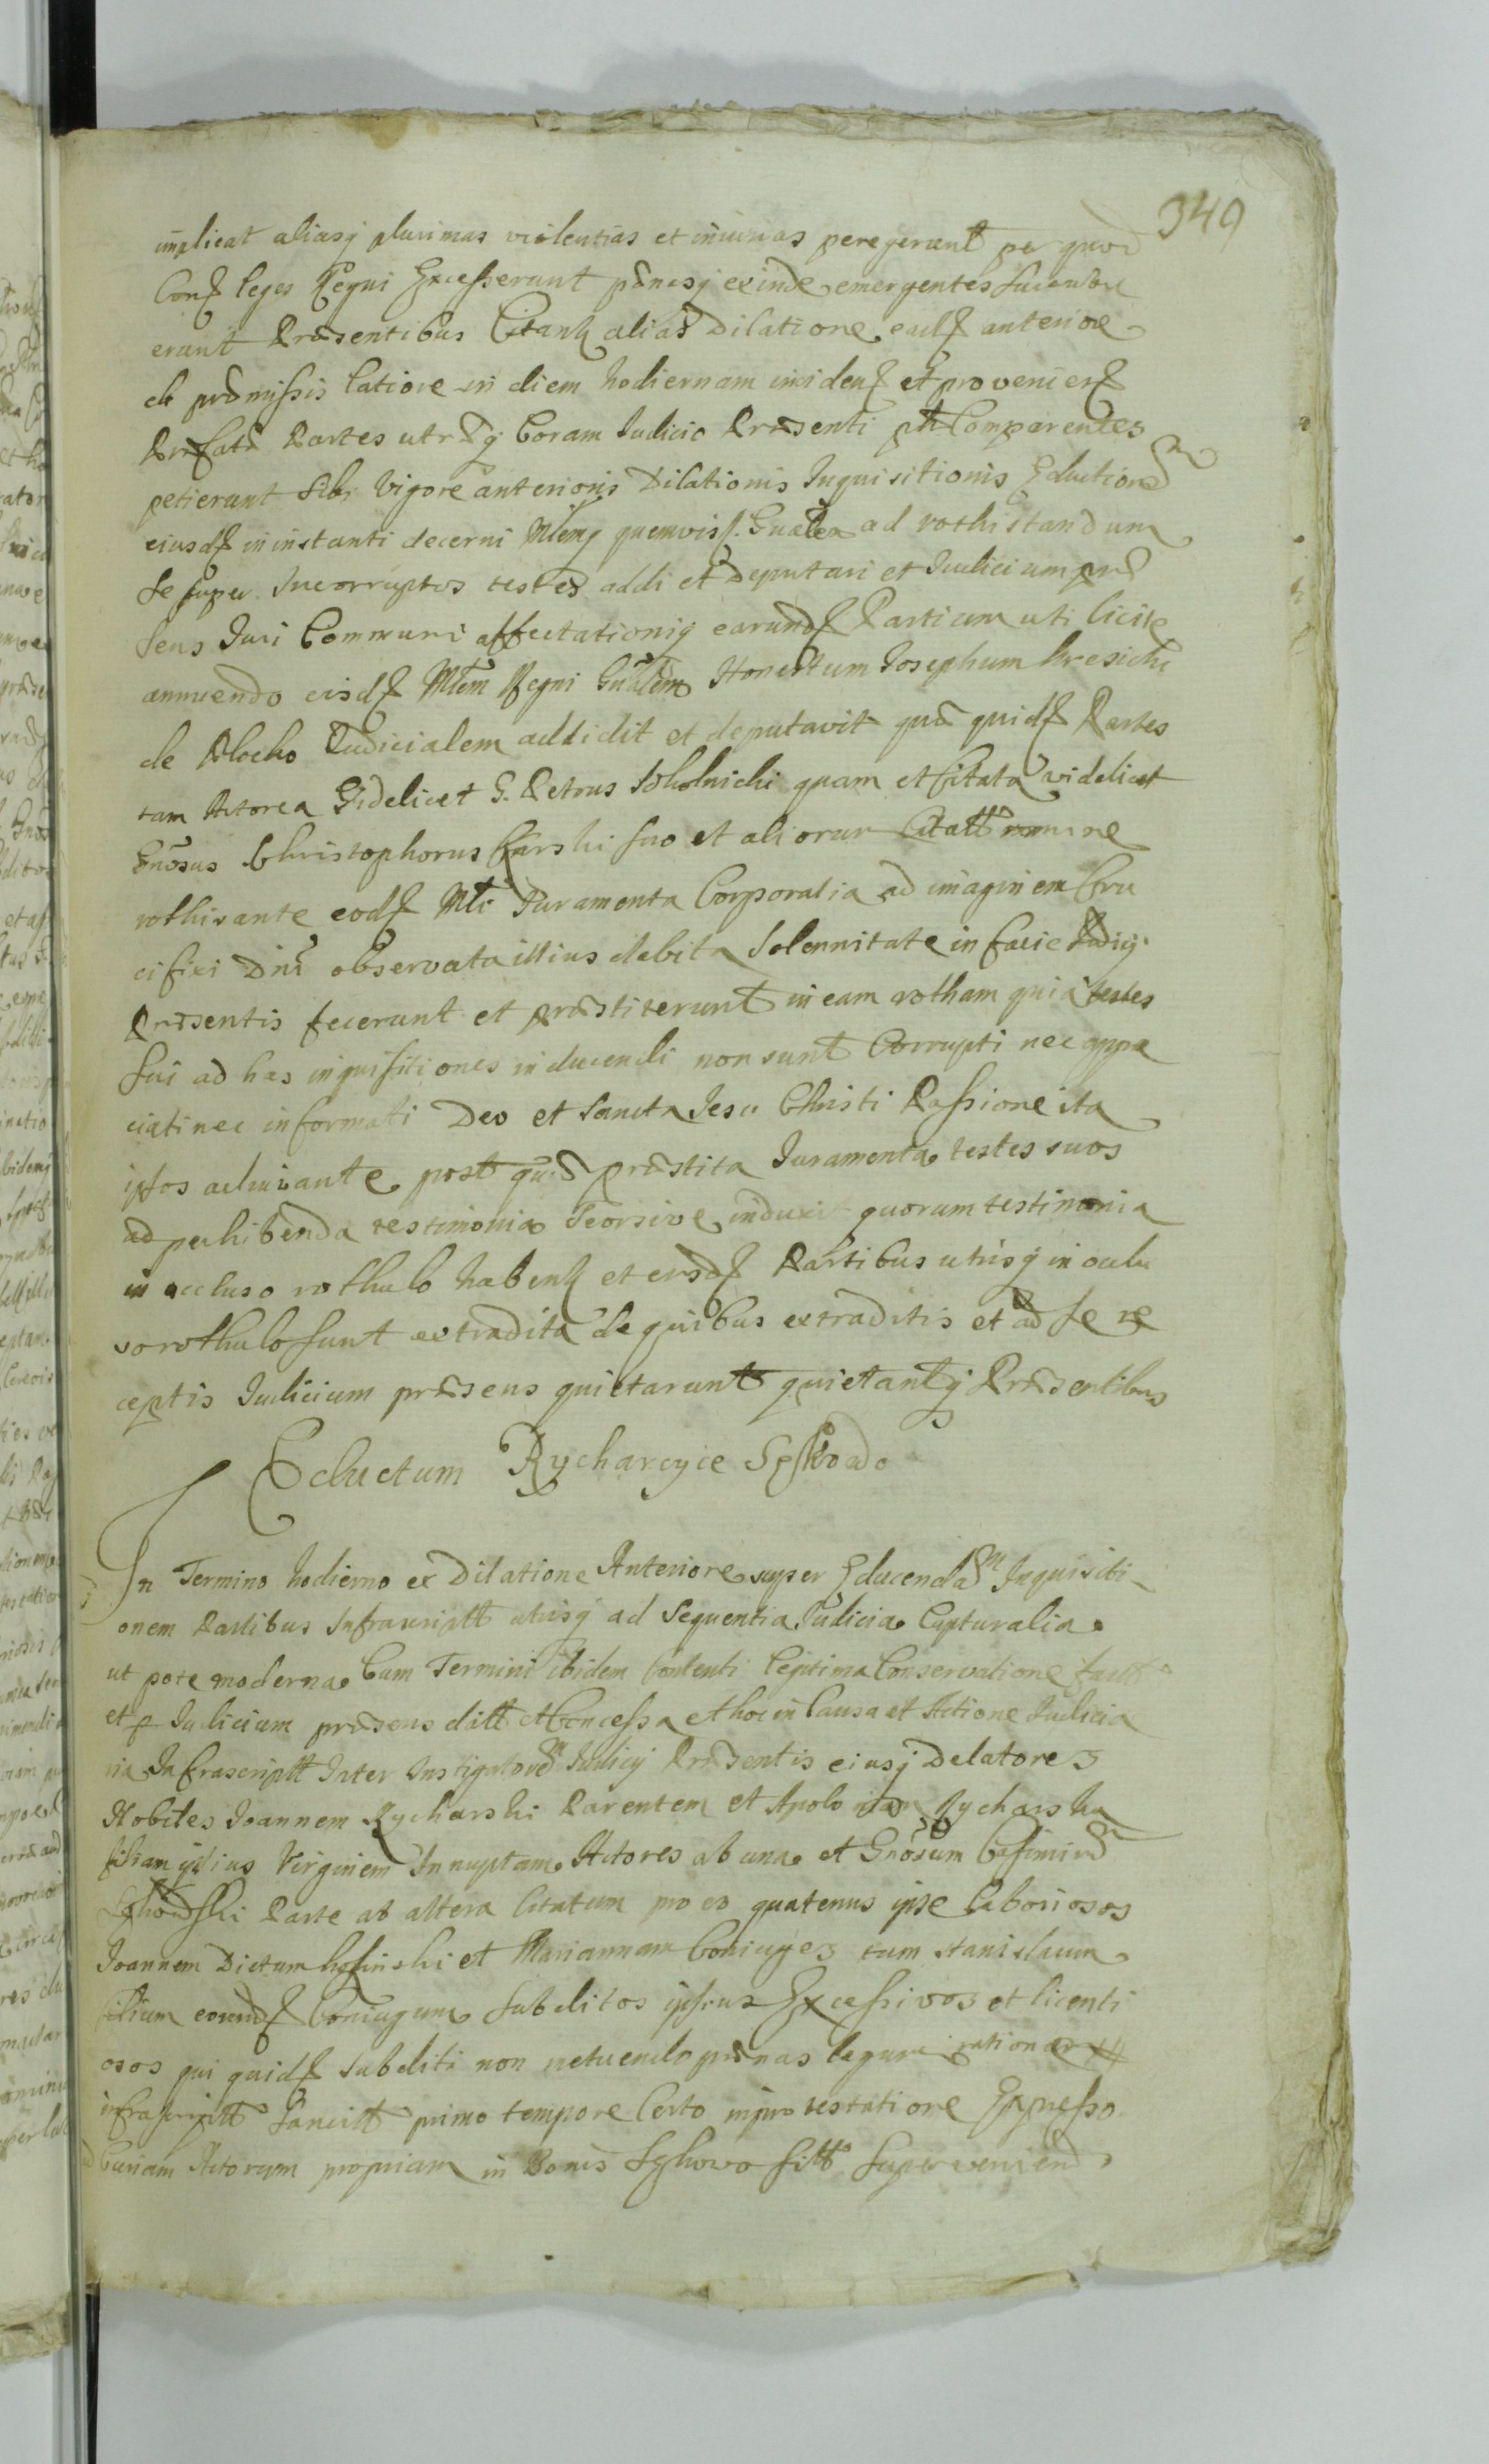 349
implicat aliasq plurimas violentias et iniurias peregerunt per quod
Conf leges Regni Excesserunt poenasq exinde emergentes
erunt Praesentibus Citank alias Dilatione eadf anteriore
de praemissis latiore in diem hodiernam incidenf et provenienf
Praefatae Partes utraeq Coram Iudicio Praesenti ptr Comparentes
petierunt sibi Vigore anterioris Dilationis Inquisitionis Eductionem
eiusdf in instanti decerni Mlemq quemvis f. Gnalem ad rothisandum
de super Incorruptos testes addi et Deputari et Iudicium prae
sens Iuri Communi affectationiq earundf Partium uti licite
annuendo eisdf Mlem Regni Gnalem Honestum Iosephum
de Plocko Iudicialem addidit et deputavit quae quidf Partes
tam Actorea Videlicet G. Petrus Skolnicki quam et Citata videlicet
Gnosus Christophorus Carski suo et aliorum Citatt nomine
rothisante eodf Mli Iuramenta Corporalia ad imaginem Cru
cifixi Dni observata illius debita Solennitate in facie Iudicij
Praesentis fecerunt et praestiterunt in eam rotham quia testes
sui ad has inquisitiones inducendi non sunt Corrupti nec appre
ciati nec informati Deo et Sancta Iesu Christi Passione ita
ipsos adiuvante post quae praestita Iuramenta testes suos
ad perhibenda testimonia Seorsive induxit quorum testimonia
in occluso rothulo habenk et eisdf Partibus utrisq in oclu
so rothulo sunt extradita de quibus extraditis et ad se re
ceptis Iudicium praesens quietarunt quietantq Praesentibus
Eductum Rycharcyce
In Termino hodierno ex Dilatione Anteriore super Educendam Inquisiti-
onem Partibus Infrascriptt utrisq ad Sequentia Iudicia Capturalia
ut pote moderna Cum Termini ibidem Contenti legitima Conservatione
et p Iudicium praesens datt et Concessa et hoc in Causa et Actione Iudicia
ria Infrascriptt Inter Instigatorem Iudicij Praesentis eiusq Delatores
Nobiles Ioannem Rycharski Parentem et Apoloniam Rycharska
filiam ipsius Virginem Innuptam Actores ab una et Gnosum Casimirum
Parte ab altera Citatum pro eo quatenus ipse laboriosos
Ioannem Dictum et Mariannam Coniuges tum Stanislaum
filium eorundf Coniugum Subditos ipsius Excessivos et licenti
osos qui quidf Subditi non metuendo poenas legum
infrascriptt Sancitt primo tempore Certo in protestatione Expresso
Curiam Actorum propriam in Bonis sitt Superveniend